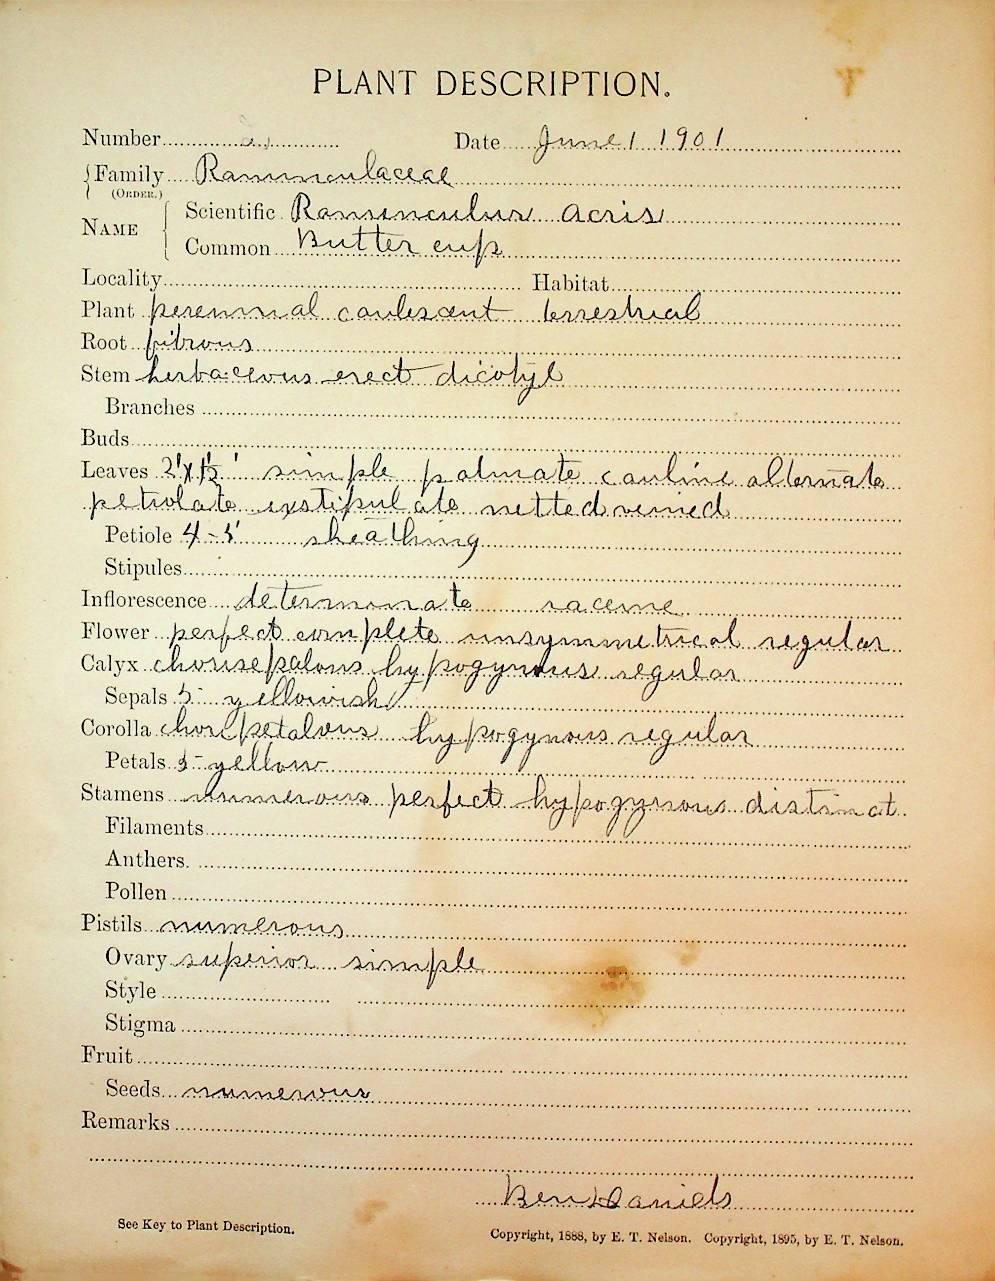 PLANT DESCRIPTION.
Number 2. Date June 1 1901
Family Ranunculaceae
(ORDER.)
NAME
Scientific Ranunculus acris
Common Butter cup
Locality Habitat
Plant perennial caulescent terrestrial
Root fibrous
Stem herbaceous erect dicotyl
Branches
Buds
Leaves 2'x1½' simple palmate cauline alternate
petiolate exstipulate netted veined
Petiole 4-5' sheathing
Stipules
Inflorescence determinate raceme
Flower perfect complete unsymmetrical regular
Calyx chorisepalous hypogynous regular
Sepals 5- yellowish
Corolla choripetalous hypogynous regular
Petals 5- yellow
Stamens numerous perfect hypogynous distinct
Filaments
Anthers.
Pollen
Pistils numerous
Ovary superior simple
Style
Stigma
Fruit
Seeds numerous
Remarks
Ben Daniels
See Key to Plant Description. Copyright, 1888, by E. T. Nelson. Copyright, 1895, by E. T. Nelson.